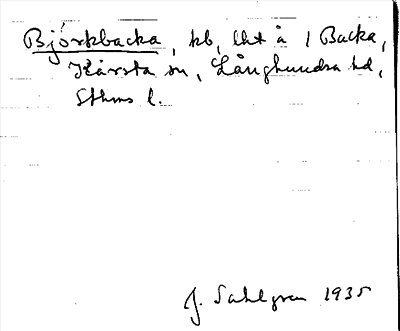 Björkbacka, hb, lht å 1 Backa,
Kårsta sn, Långhundra hd,
Sthms l.
J. Sahlgren 1935